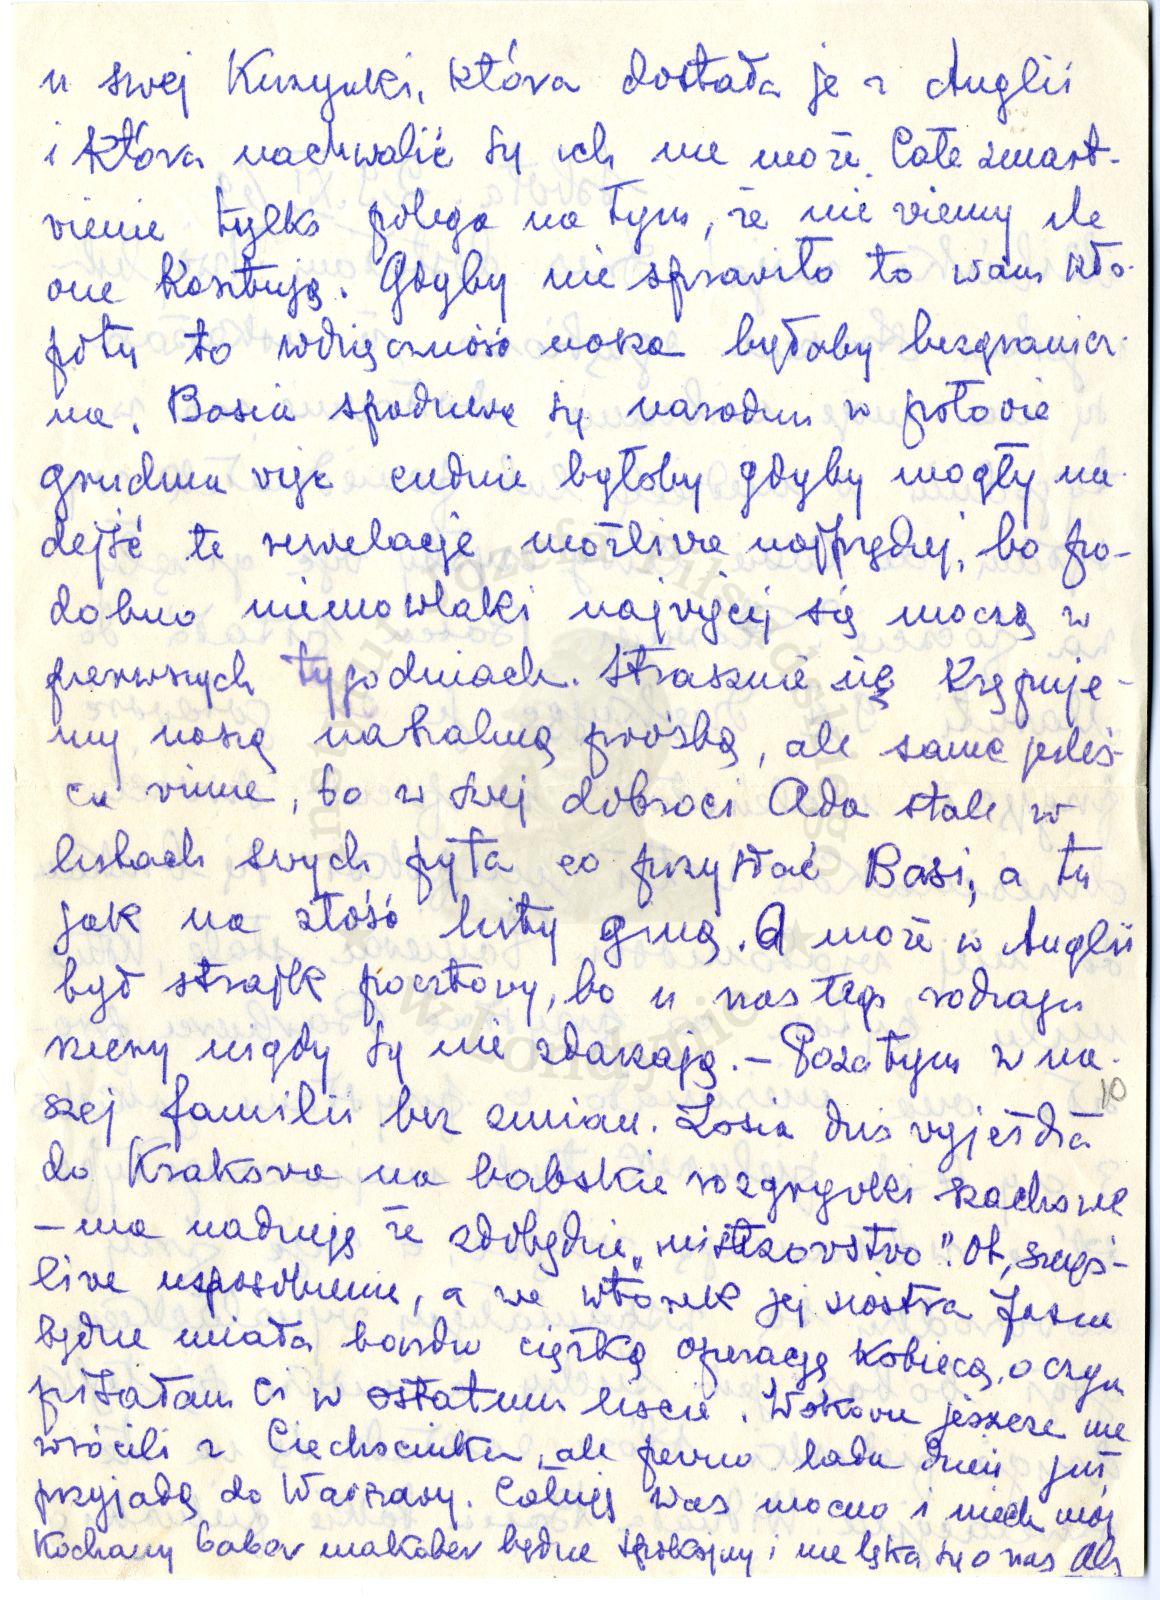 u swej Kuzynki, która dostała je z Anglii
i która nachwalić się ich nie może. Całe zmart-
wienie tylko polega na tym, że nie wiemy ile
one kosztują. Gdyby nie sprawiło to wam kło-
potu to wdzięczność nasza byłaby bezgranicz-
na. Basia spodziewa się narodzin w połowie
grudnia więc cudnie byłoby gdyby mogły na-
dejść te rewelacje możliwie najprędzej, bo po-
dobno niemowlaki najwięcej się moczą w
pierwszych tygodniach. Strasznie się krępuje-
my naszą nachalną prośbą, ale same jesteś-
cie winne, bo w swej dobroci Ada stale w
listach swych pyta co przysłać Basi, a tu
jak na złość listy giną. A może w Anglii
był strajk pocztowy, bo u nas tego rodzaju
rzeczy nigdy się nie zdarzają. – Poza tym w na-
szej familii bez zmian. Zosia dziś wyjeżdża
do Krakowa na babskie rozgrywki szachowe
– ma nadzieję że zdobędzie „mistrzostwo". Ot, szczęś-
liwe usposobienie, a we wtorek jej siostra
będzie miała bardzo ciężką operację kobiecą, o czym
pisałam Ci w ostatnim liście. jeszcze nie
wrócili z Ciechocinka, ale pewno lada dzień już
przyjadą do Warszawy. Całuję was mocno i niech mój
Kochany babor makabor będzie spokojny i nie lęka się o nas Ala
10
Instytut Józefa Piłsudskiego
w Londynie